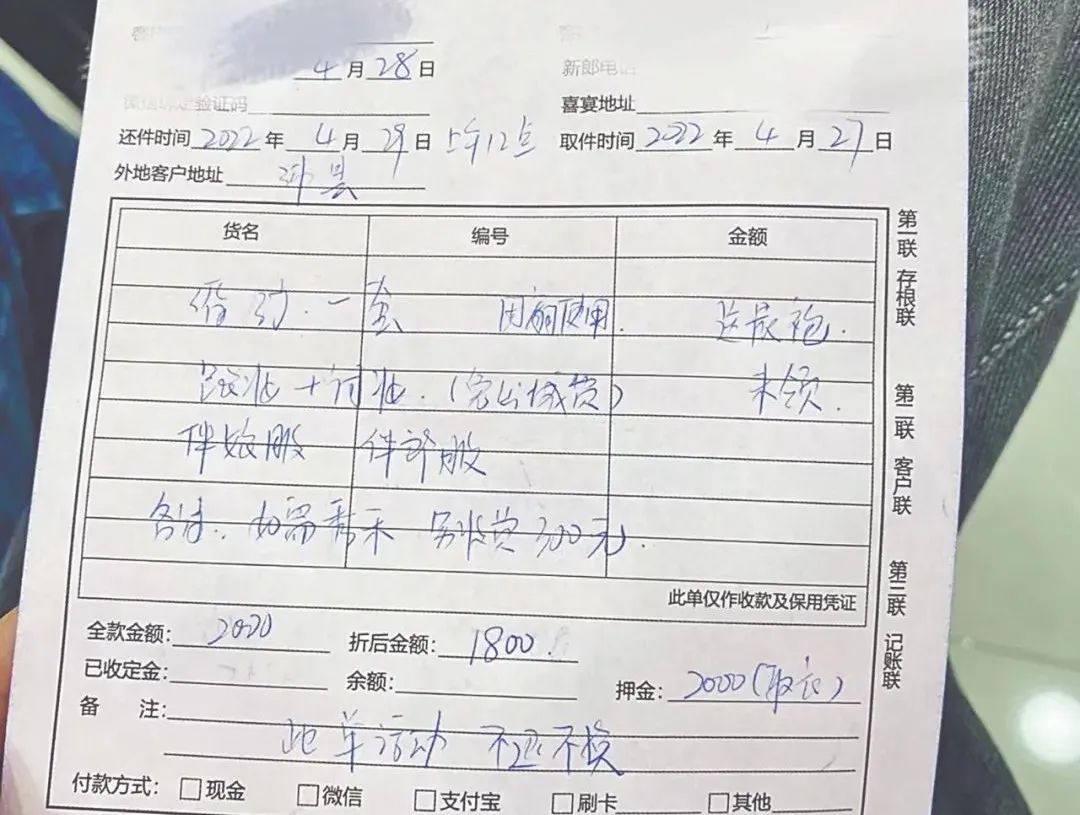 4月28日
新郎电话
验证码 喜宴地址
还件时间 2022年 4月29日 上午12点 取件时间 2022年 4月27日
外地客户地址 沛县
货名 编号 金额
一套 送晨袍.
跟妆+ 妆.(含出城费) 未领.
伴娘服 伴郎服
备注: 如需秀禾 另收费300元.
此单仅作收款及保用凭证
全款金额: 2020 折后金额: 1800.
已收定金: 余额: 押金: 2000(取衣)
备 注: 此单活动 不退不换
付款方式: □现金 □微信 □支付宝 □刷卡 □其他
第一联 存根联
第二联 客户联
第三联 记账联